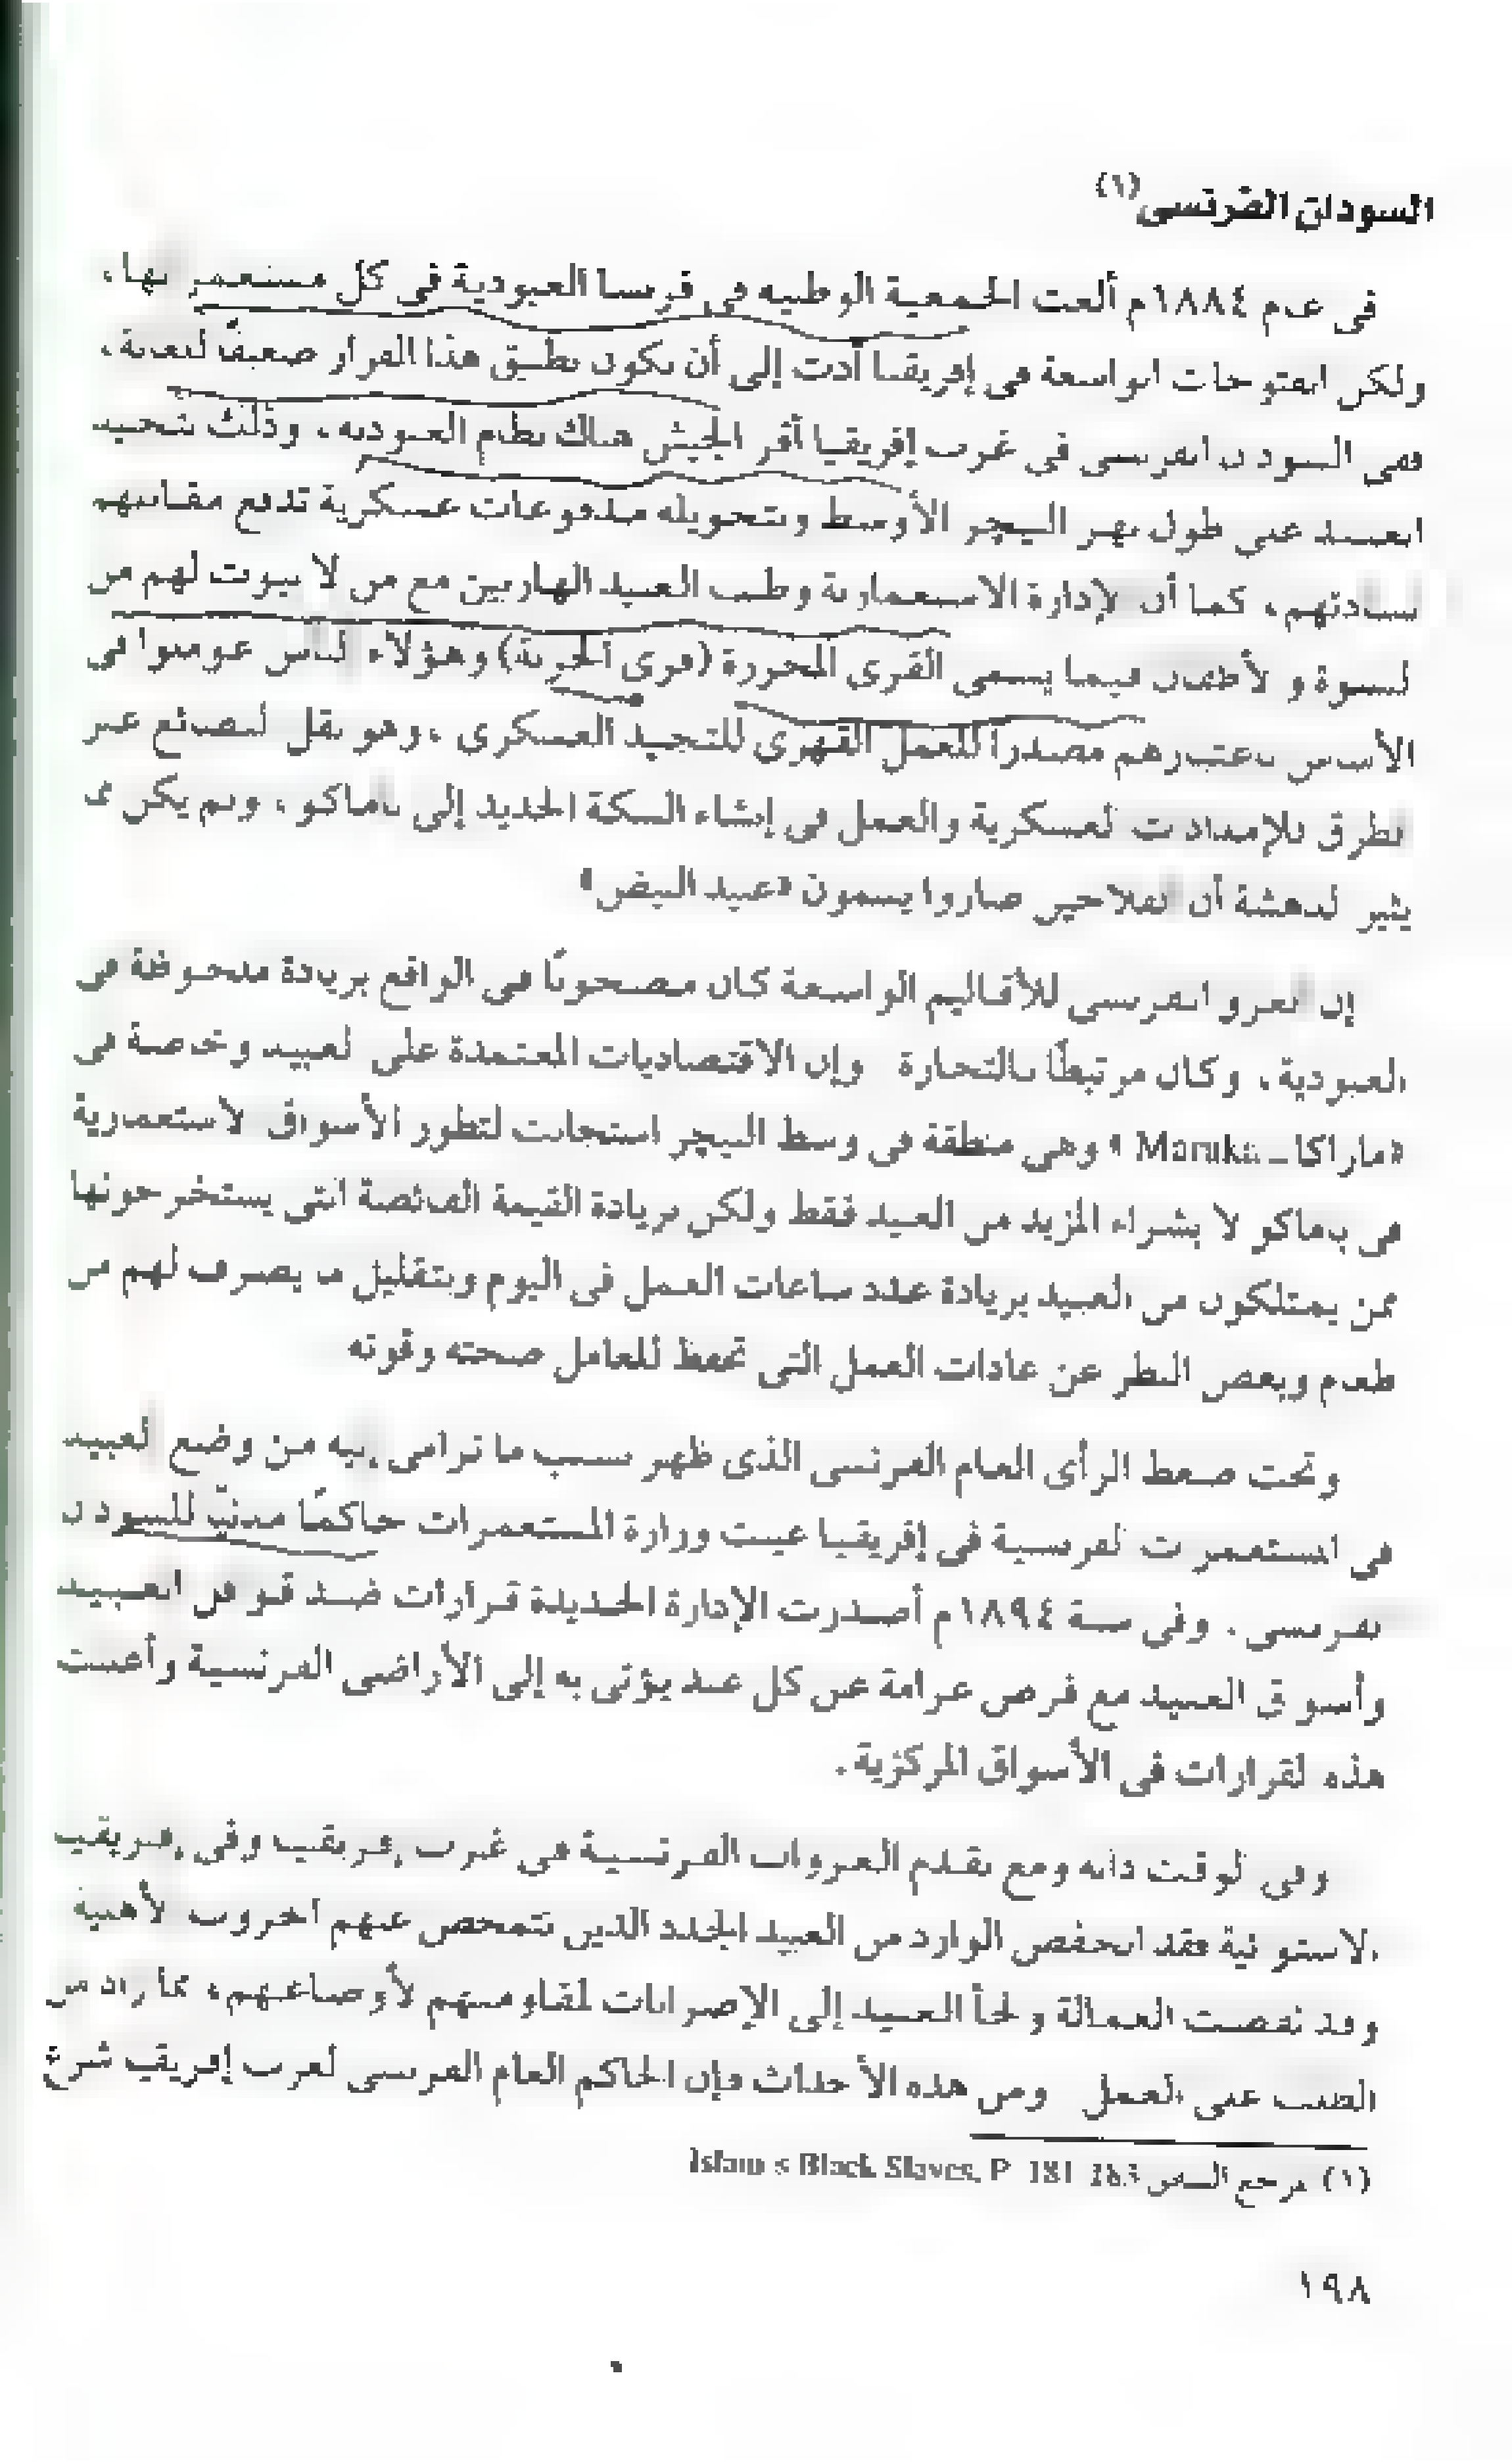 السودان الفرنسى(١)
فى عام ١٨٨٤م ألغت الجمعية الوطنية فى فرنسا العبودية فى كل مستعمراتها،
ولكن الفتوحات الواسعة فى إفريقيا أدت إلى أن يكون تطبيق هذا القرار ضعيفًا للغاية،
ففى السودان الفرنسى فى غرب إفريقيا أقر الجيش هناك نظام العبودية، وذلك بتجنيد
العبيد على طول نهر النيجر الأوسط وبتحويله مدفوعات عسكرية تدفع مقابلهم
لسادتهم، كما أن الإدارة الاستعمارية وطنت العبيد الهاربين مع من لا بيوت لهم من
النسوة والأطفال فيما يسمى القرى المحررة (قرى الحرية) وهؤلاء الناس عوملوا فى
الأساس باعتبارهم مصدرًا للعمل القهرى للتجنيد العسكرى، وهو نقل البضائع عبر
الطرق للإمدادات العسكرية والعمل فى إنشاء السكة الحديد إلى باماكو، ولم يكن مما
يثير الدهشة أن الفلاحين صاروا يسمون «عبيد البيض»
إن الغزو الفرنسى للأقاليم الواسعة كان مصحوبًا فى الواقع بزيادة ملحوظة فى
العبودية، وكان مرتبطًا بالتجارة وإن الاقتصاديات المعتمدة على العبيد وخاصة فى
«ماراكا ـ Maraka» وهى منطقة فى وسط النيجر استجابت لتطور الأسواق الاستعمارية
فى باماكو لا بشراء المزيد من العبيد فقط ولكن بزيادة القيمة الفائضة التى يستخرجونها
ممن يمتلكون من العبيد بزيادة عدد ساعات العمل فى اليوم وبتقليل ما يصرف لهم من
طعام وبغض النظر عن عادات العمل التى تحفظ للعامل صحته وقوته
وتحت ضغط الرأى العام الفرنسى الذى ظهر بسبب ما ترامى إليه من وضع العبيد
فى المستعمرات الفرنسية فى إفريقيا عينت وزارة المستعمرات حاكمًا مدنيًّا للسودان
الفرنسى. وفى سنة ١٨٩٤م أصدرت الإدارة الجديدة قرارات ضد قوافل العبيد
وأسواق العبيد مع فرض غرامة عن كل عبد يؤتى به إلى الأراضى الفرنسية وأعلنت
هذه القرارات فى الأسواق المركزية.
وفى الوقت ذاته ومع تقدم الغزوات الفرنسية فى غرب إفريقيا وفى إفريقيا
الاستوائية فقد انخفض الوارد من العبيد الجدد الذين تتمخض عنهم الحروب الأهلية
وقد نقصت العمالة ولجأ العبيد إلى الإضرابات لمقاومتهم لأوضاعهم، مما زاد من
الطلب على العمل ومن هذه الأحداث فإن الحاكم العام الفرنسى لغرب إفريقيا شرع
(١) مرجع السابق Islam's Black Slaves, P. 181-183
١٩٨